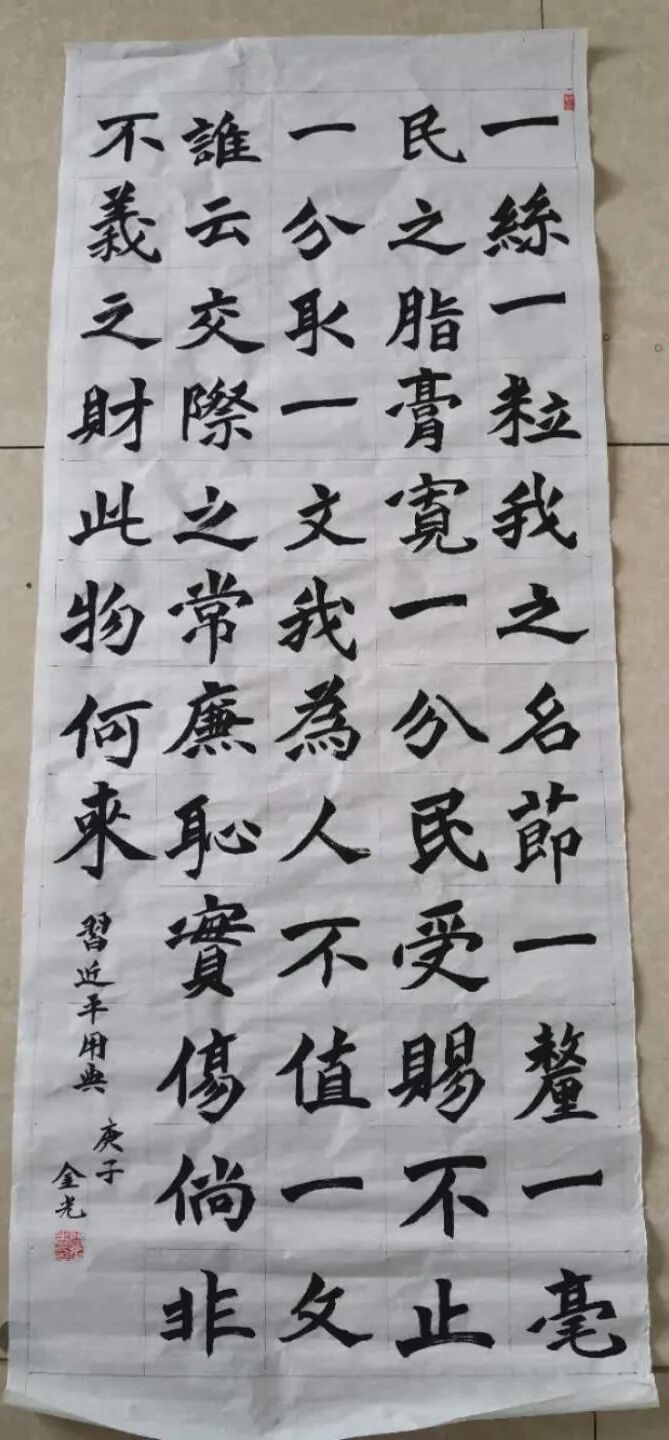 一絲一粒我之名節一釐一毫
民之脂膏寬一分民受賜不止
一分取一文我為人不值一文
誰云交際之常廉恥實傷倘非
不義之財此物何來
習近平用典
庚子
金光